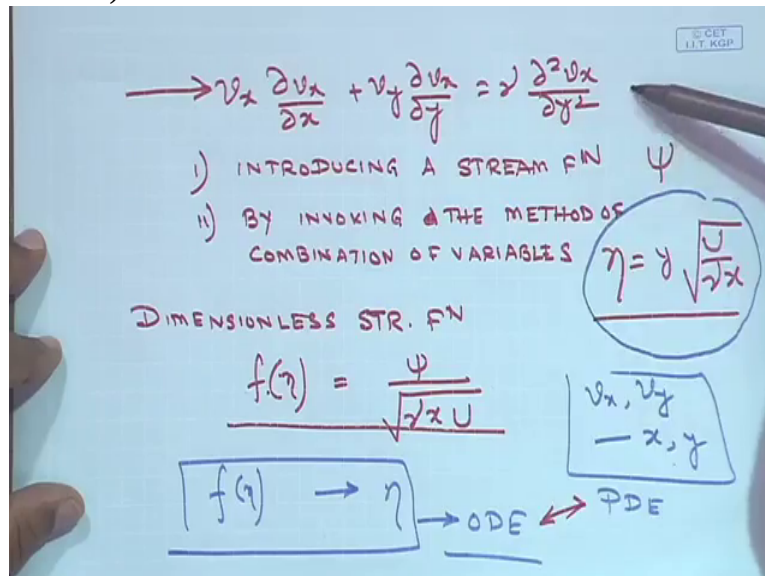 © CET
I.I.T. KGP
→ νx ∂νx/∂x + νy ∂νx/∂y = ν ∂²νx/∂y²
i) INTRODUCING A STREAM FN ψ
ii) BY INVOKING THE METHOD OF
COMBINATION OF VARIABLES
η = y √(U/νx)
DIMENSIONLESS STR. FN
f(η) = ψ/√(νxU)
νx, νy
— x, y
f(η) → η → ODE ↔ PDE